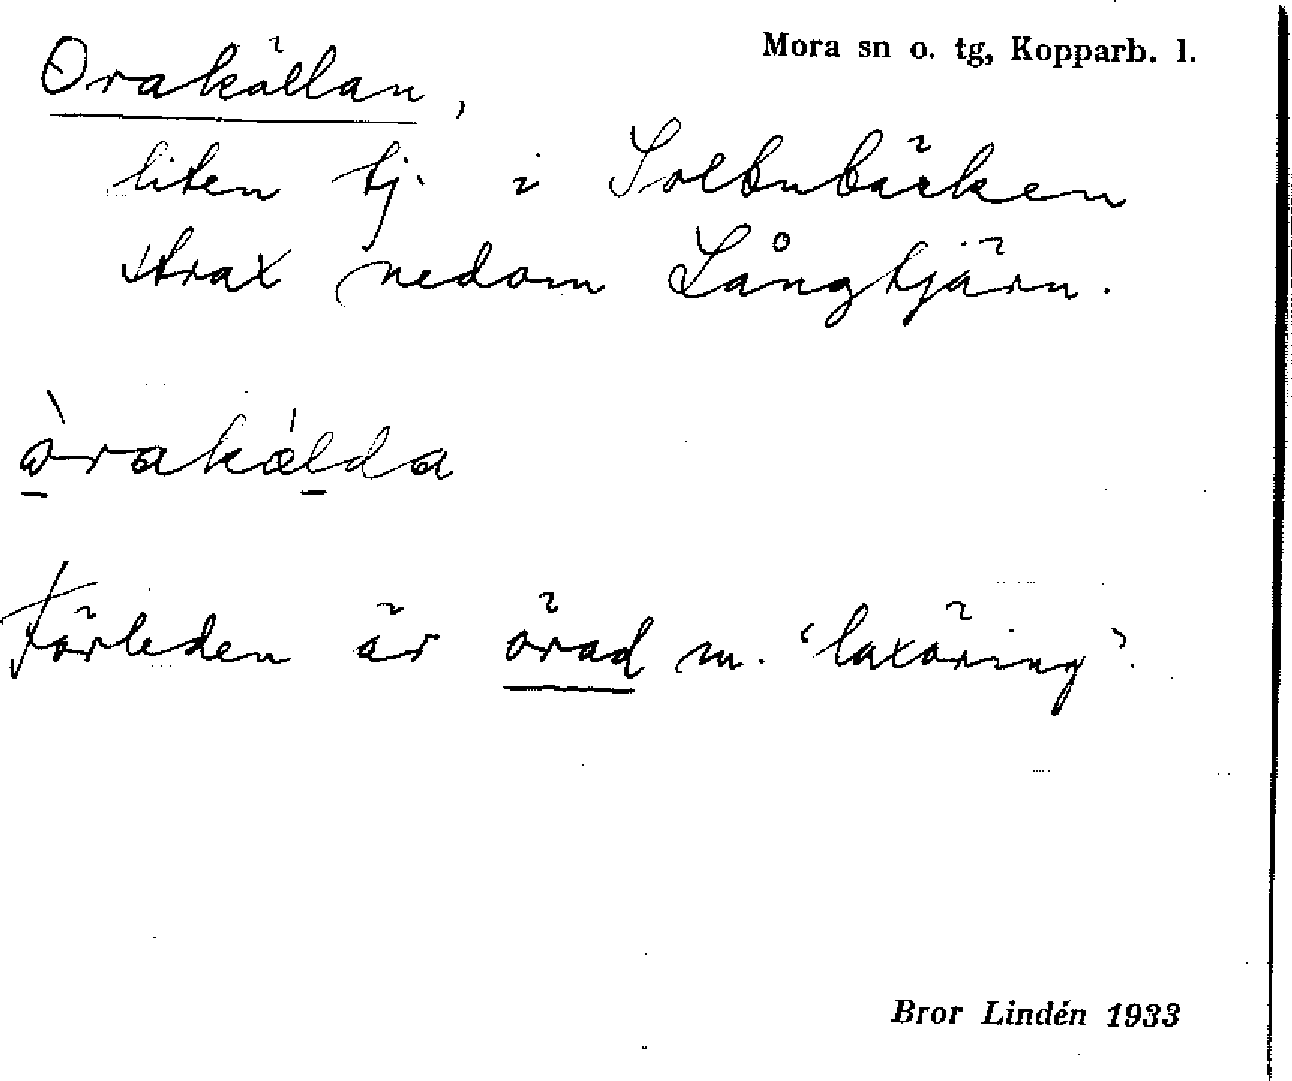 Mora sn o. tg, Kopparb. l.
Orakällan,
liten tj. i Solbnbäcken
strax nedom Långtjärn.
òrakálda
Förleden är örad m. 'laxöring'.
Bror Lindén 1933